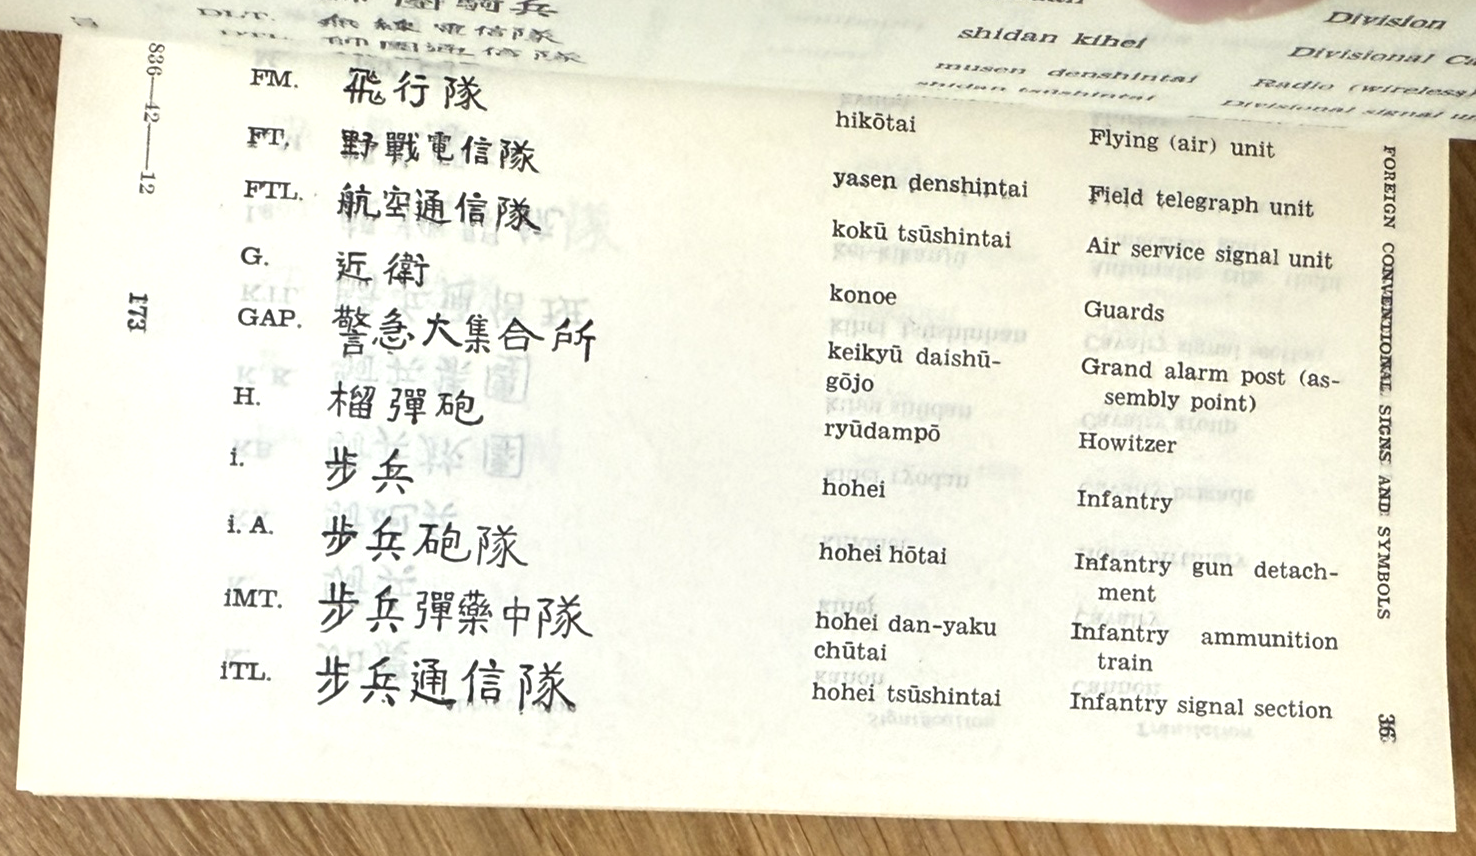 Division
shidan kihei
Divisional
musen denshintai
Radio (wireless)
DLT. 無線電信隊
師團通信隊
shidan tsūshintai
Divisional signal
836—42—12
FM. 飛行隊 hikōtai Flying (air) unit
FT. 野戰電信隊 yasen denshintai Field telegraph unit
FTL. 航空通信隊 kokū tsūshintai Air service signal unit
G. 近衛 konoe Guards
GAP. 警急大集合所 keikyū daishū-
gōjo
Grand alarm post (as-
sembly point)
H. 榴彈砲 ryūdampō Howitzer
i. 步兵 hohei Infantry
i. A. 步兵砲隊 hohei hōtai Infantry gun detach-
ment
iMT. 步兵彈藥中隊 hohei dan-yaku
chūtai
Infantry ammunition
train
iTL. 步兵通信隊 hohei tsūshintai Infantry signal section
173
FOREIGN CONVENTIONAL SIGNS AND SYMBOLS